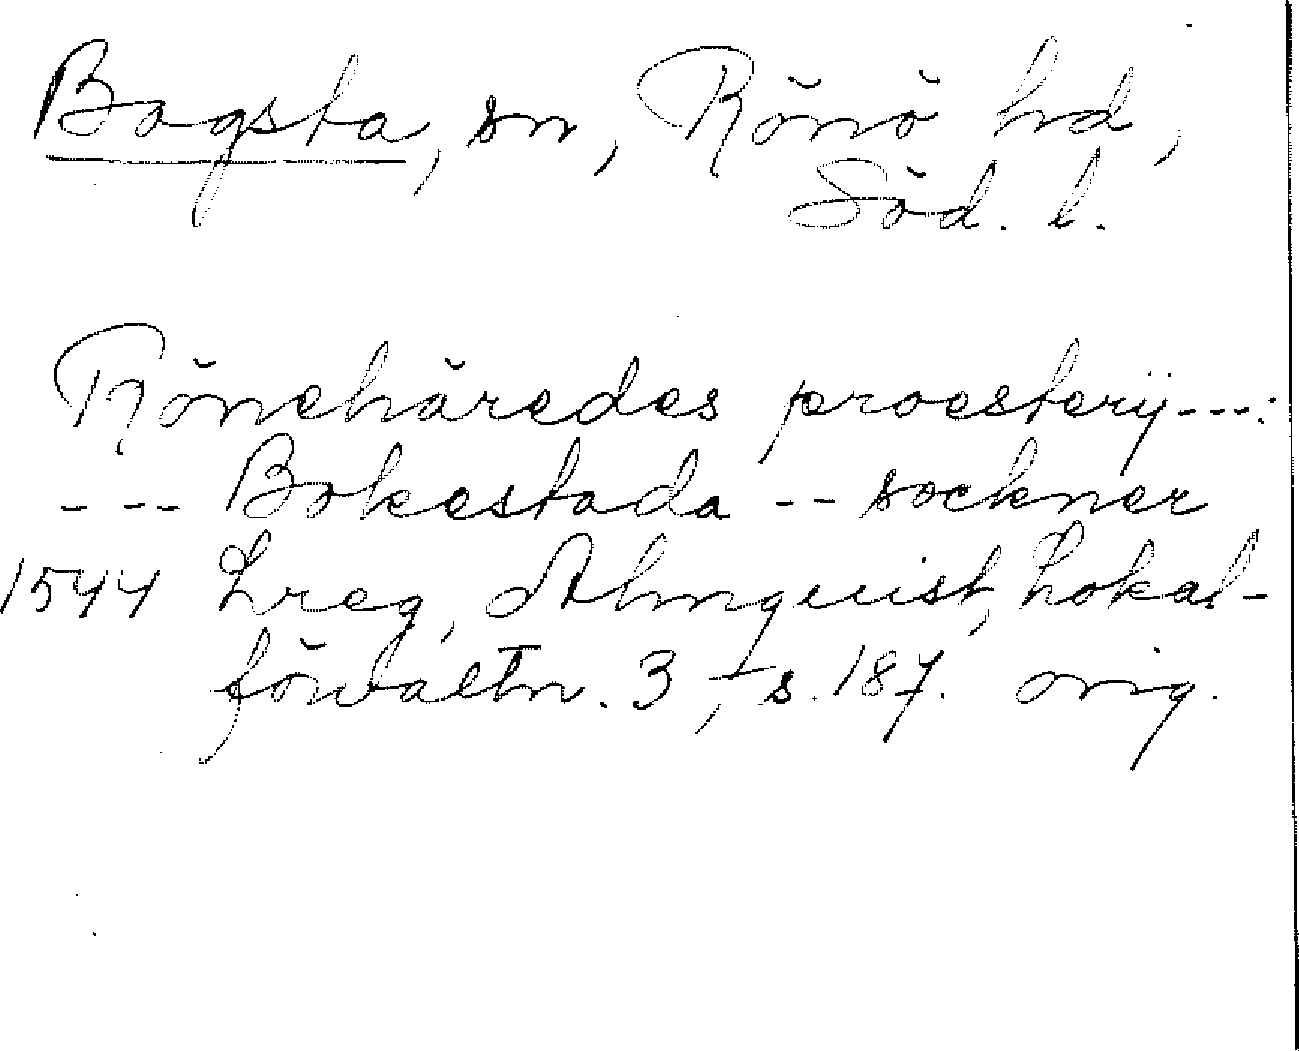 Bogsta, sn, Rönö hd,
Söd. l.
Rönehäredes proesterij ---:
--- Bokestada -- sockner
1544 Lreg, Almquist, Lokal-
förvaltn. 3, s. 187. orig.